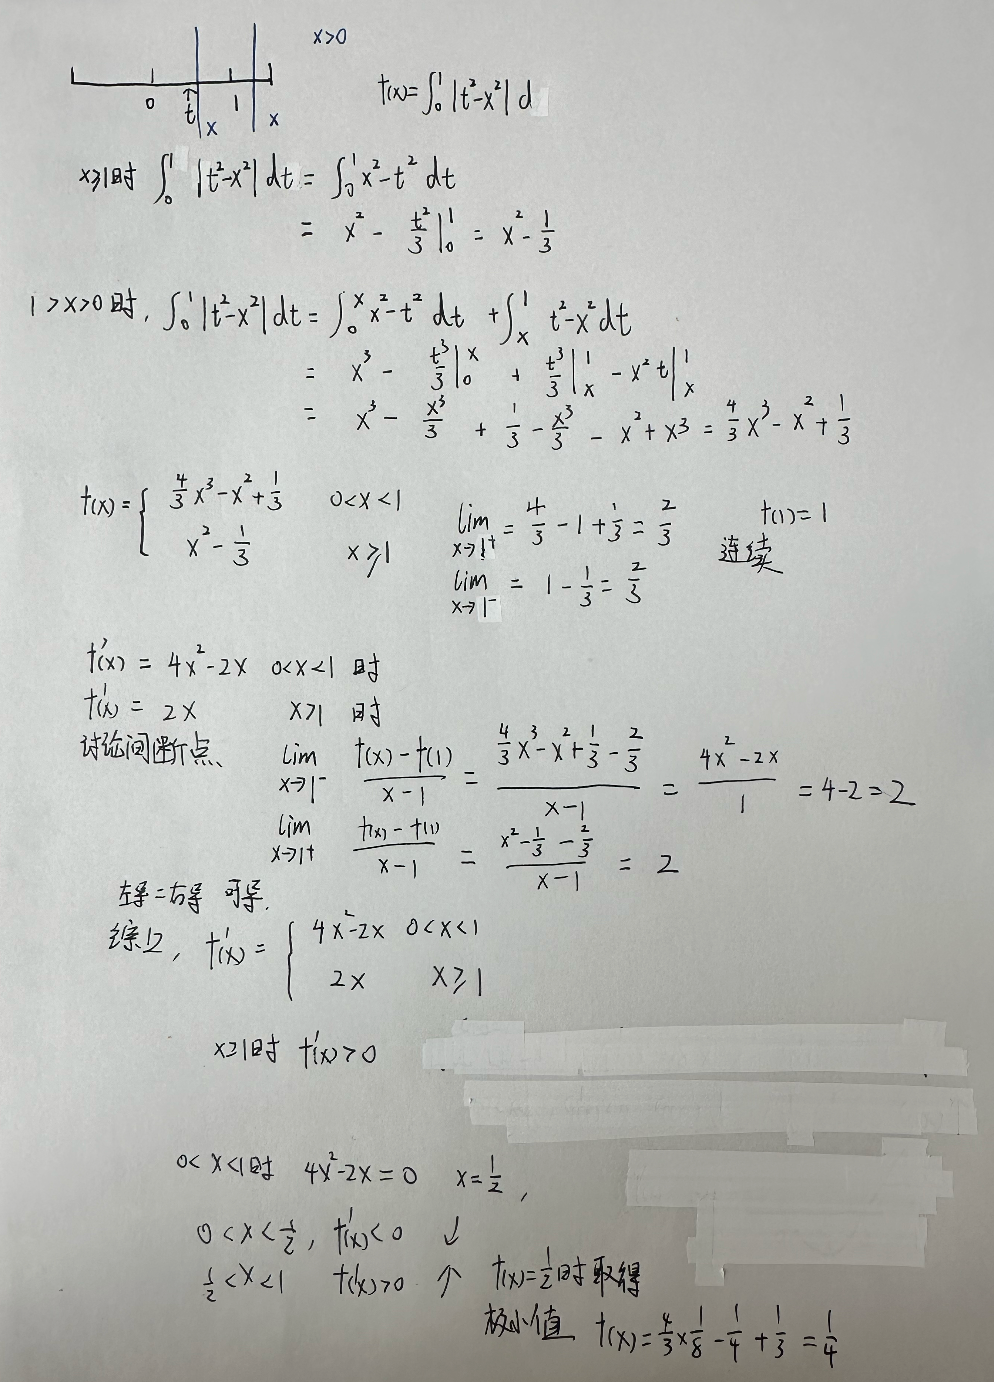 x>0
0 t x 1 x
f(x)=∫₀¹ |t²-x²| d
x≥1时 ∫₀¹ |t²-x²| dt = ∫₀¹ x²-t² dt
= x² - t²/3 |₀¹ = x² - 1/3
1>x>0时, ∫₀¹ |t²-x²| dt = ∫₀ˣ x²-t² dt + ∫ₓ¹ t²-x² dt
= x³ - t³/3 |₀ˣ + t³/3 |ₓ¹ - x²t |ₓ¹
= x³ - x³/3 + 1/3 - x³/3 - x² + x³ = 4/3 x³ - x² + 1/3
f(x) = { 4/3 x³ - x² + 1/3 0<x<1
x² - 1/3 x≥1
lim x→1⁺ = 4/3 - 1 + 1/3 = 2/3 f(1)=1
lim x→1⁻ = 1 - 1/3 = 2/3 连续
f'(x) = 4x²-2x 0<x<1 时
f'(x) = 2x x>1 时
讨论间断点、 lim x→1⁻ (f(x)-f(1))/(x-1) = (4/3 x³ - x² + 1/3 - 2/3)/(x-1) = (4x²-2x)/1 = 4-2 = 2
lim x→1⁺ (f(x)-f(1))/(x-1) = (x² - 1/3 - 2/3)/(x-1) = 2
左导=右导 可导.
综上, f'(x) = { 4x²-2x 0<x<1
2x x≥1
x≥1时 f'(x)>0
0<x<1时 4x²-2x=0 x=1/2,
0<x<1/2, f'(x)<0 ↓
1/2<x<1 f'(x)>0 ↑ f(x)=1/2时取得
极小值 f(x)=4/3×1/8-1/4+1/3=1/4